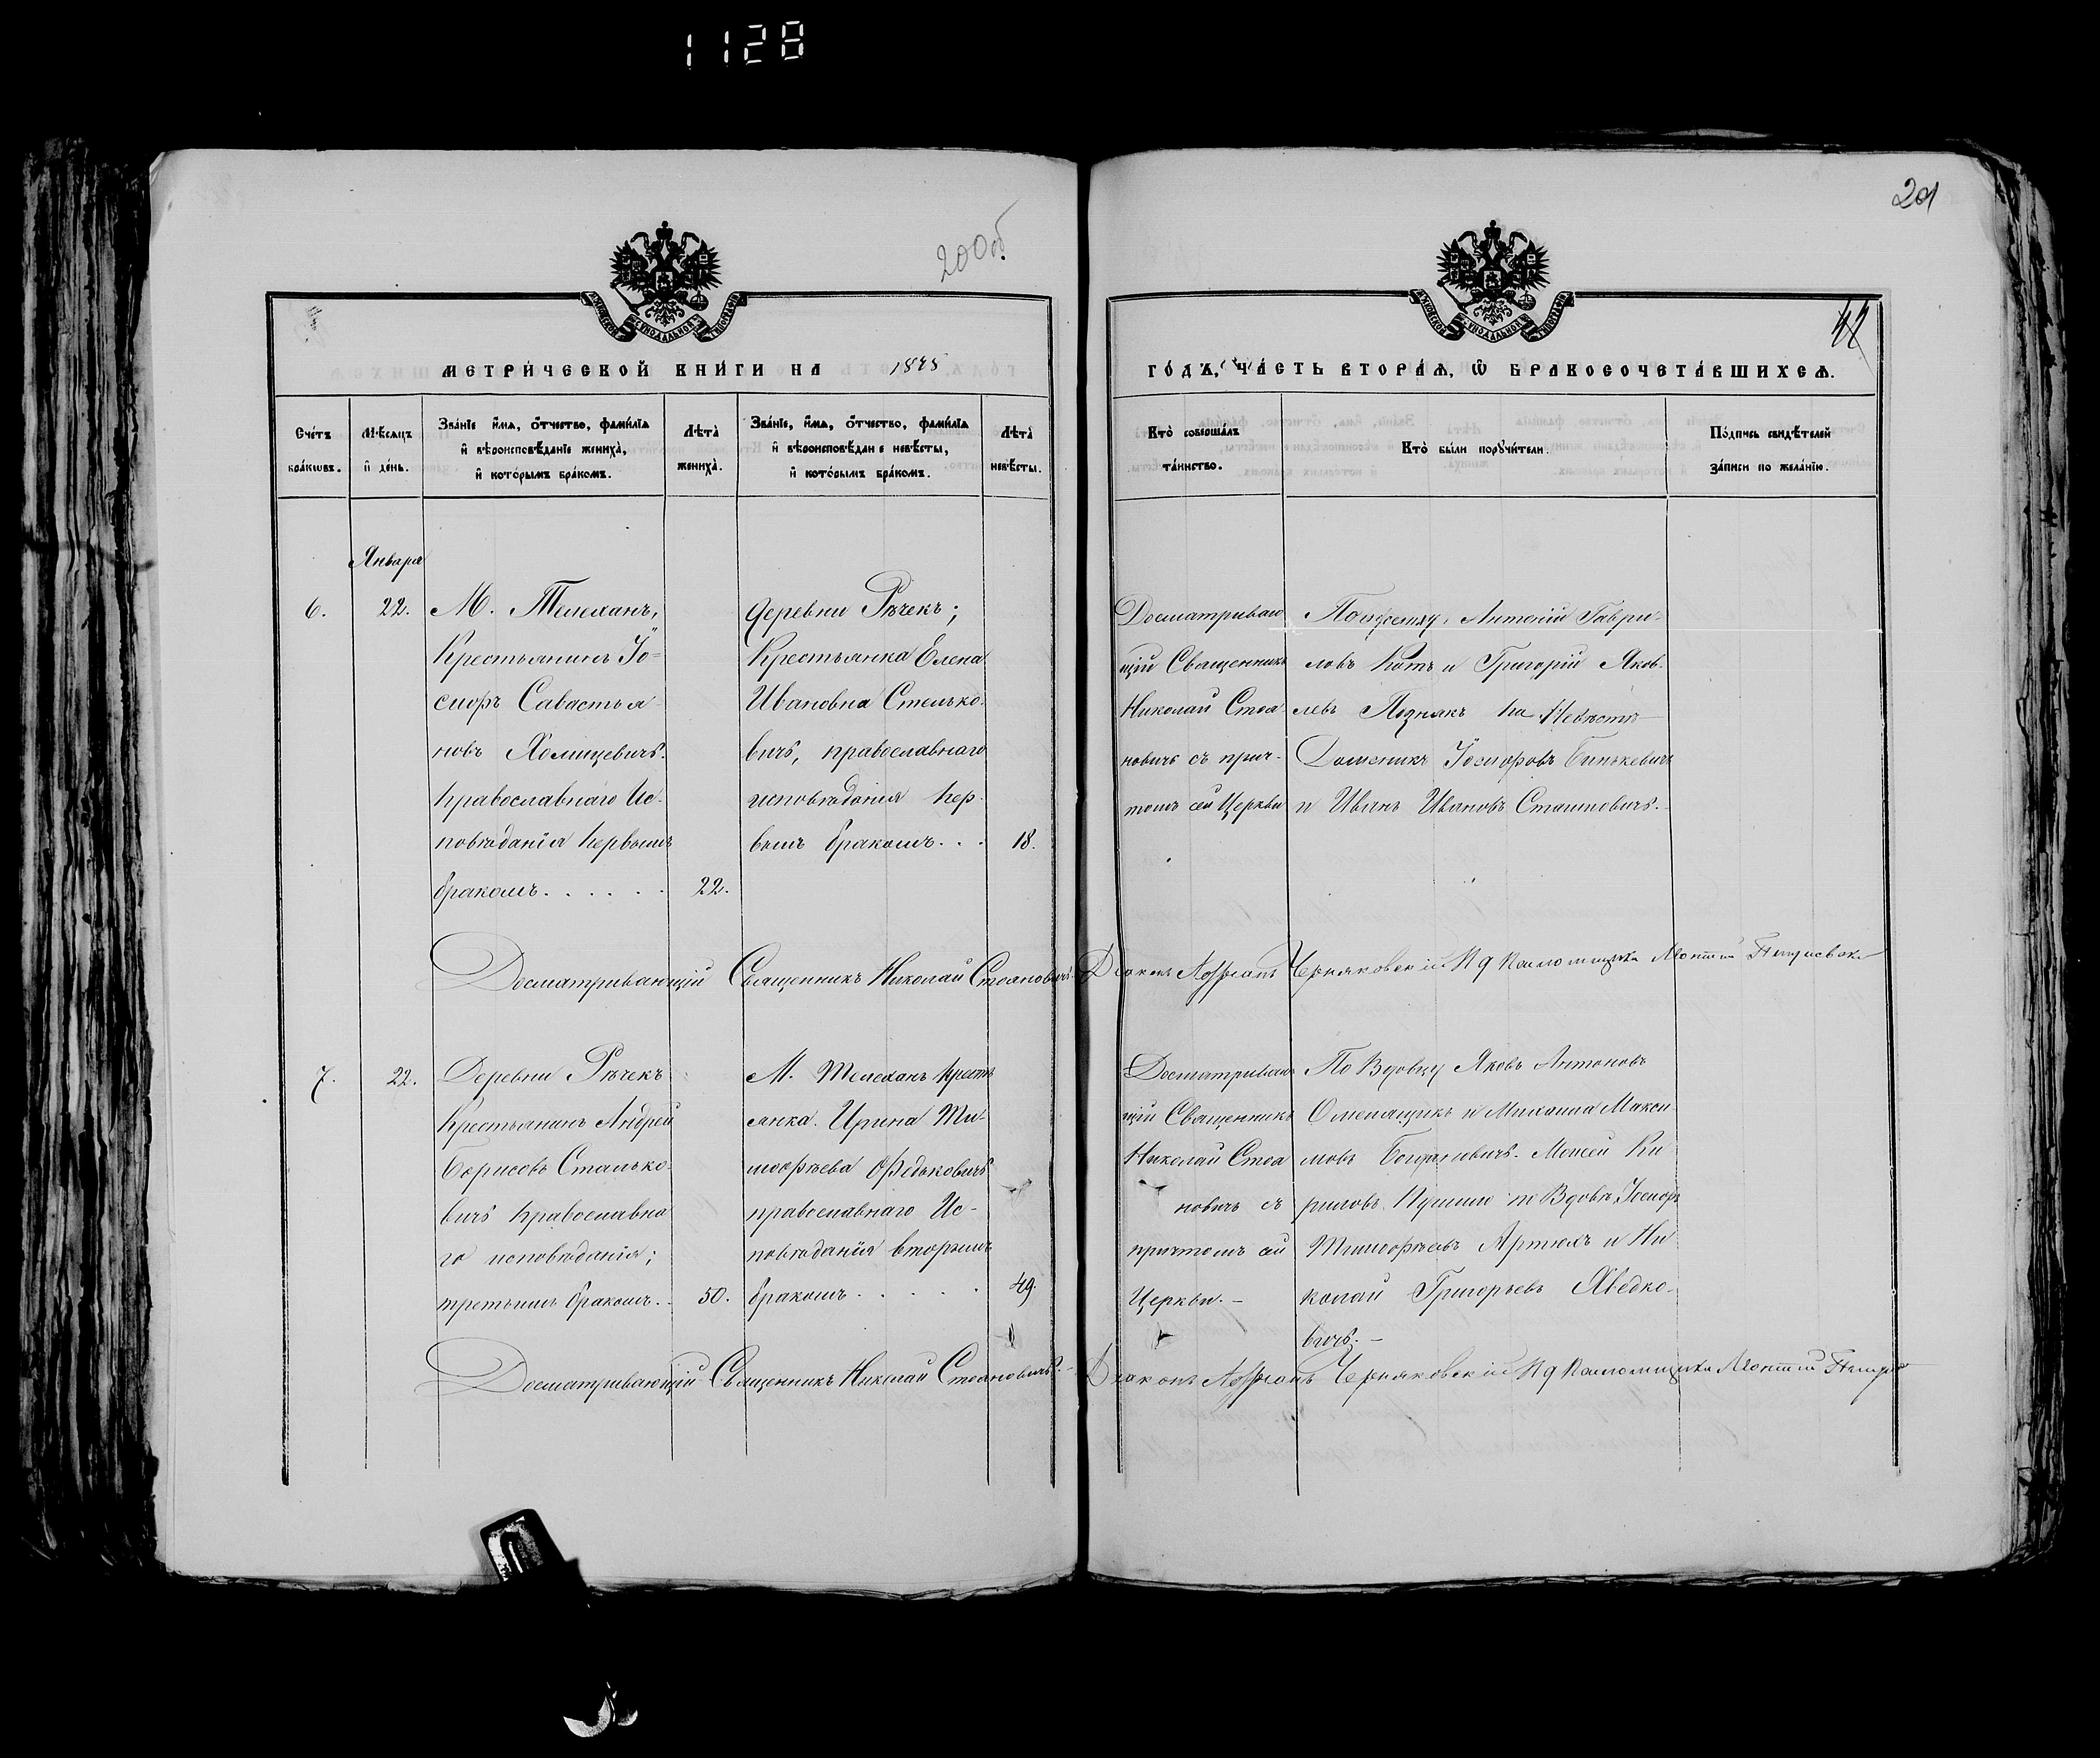 1128
200об
201
42
МЕТРИЧЕСКОЙ КНИГИ НА 1875
ГОДЪ, ЧАСТЬ ВТОРАЯ, Ѡ БРАКОСОЧЕТАВШИХСЯ.
Счетъ браковъ.
Мѣсяцъ и день.
Званіе имя, отчество, фамилія
и вѣроисповѣданіе жениха,
и которымъ бракомъ.
Лѣта
жениха.
Званіе, имя, отчество, фамилія
и вѣроисповѣданіе невѣсты,
и которымъ бракомъ.
Лѣта
невѣсты.
Кто совершалъ
таинство.
Кто были поручители.
Подпись свидѣтелей
записи по желанію.
Января
6.
22.
М. Телеханъ,
Крестьянинъ Іо=
сифъ Савастья-
новъ Холицевичъ.
православнаго Ис-
повѣданія первымъ
бракомъ......
22.
деревни Рѣчекъ;
Крестьянка Елена
Ивановна Стелько-
вичъ, православнаго
исповѣданія пер-
вымъ бракомъ...
18.
Досматриваю
щій Священникъ
Николай Стоа
новичъ съ прич-
томъ сей Церкви
По жениху, Антоній Гаври-
ловъ Котъ и Григорій Яков-
левъ Познякъ по Невѣстѣ
Доменикъ Іосифовъ Бинкевичъ
и Иванъ Ивановъ Сташкевичъ.
Досматривающій Священникъ Николай Стояновичъ.
Діаконъ Черняковскій
7.
22.
Деревни Рѣчекъ
Крестьянинъ Андрей
Борисовъ Сталько-
вичъ православна
го исповѣданія;
третьимъ бракомъ..
50.
М. Телеханъ крестъ
янка. Ирина Ти-
мофѣева Федьковичъ
православнаго Ис-
повѣданія вторымъ
бракомъ.....
49.
Досматриваю
щій Священникъ
Николай Стоа
новичъ съ
причтомъ сей
Церкви.-
По Вдовцу Яковъ Антоновъ
и Михаила Макси-
мовъ Моисей Ки
риловъ по Вдовѣ, Іосифъ
Тимофѣевъ Артюхъ и Ни
колай Григорьевъ Хведко-
вичъ.-
Досматривающій Священникъ Николай Стояновичъ.-
Діаконъ Черняковскій